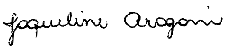 Jaqueline Aragoni